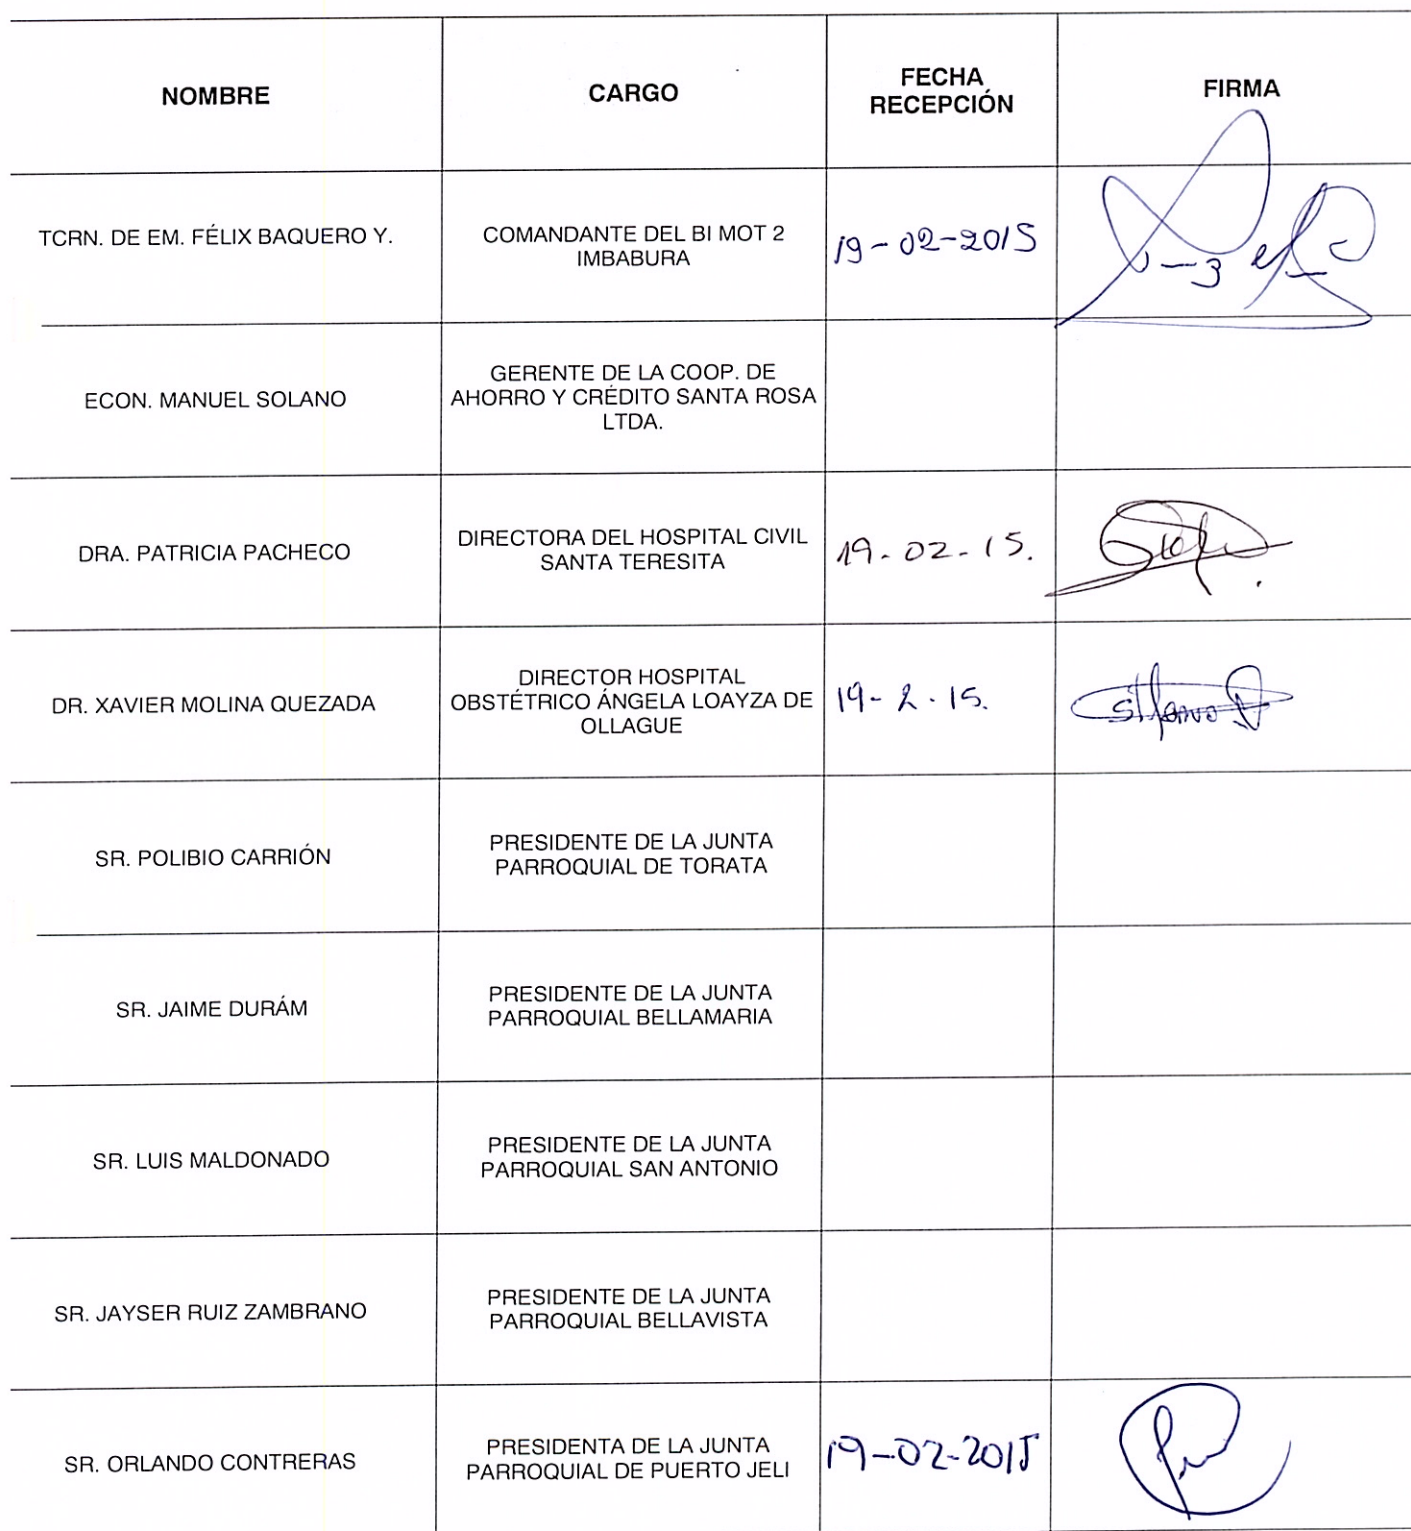 NOMBRE
CARGO
FECHA
RECEPCIÓN
FIRMA
TCRN. DE EM. FÉLIX BAQUERO Y.
COMANDANTE DEL BI MOT 2
IMBABURA
19-02-2015
ECON. MANUEL SOLANO
GERENTE DE LA COOP. DE
AHORRO Y CRÉDITO SANTA ROSA
LTDA.
DRA. PATRICIA PACHECO
DIRECTORA DEL HOSPITAL CIVIL
SANTA TERESITA
19-02-15.
DR. XAVIER MOLINA QUEZADA
DIRECTOR HOSPITAL
OBSTÉTRICO ÁNGELA LOAYZA DE
OLLAGUE
19-2-15.
SR. POLIBIO CARRIÓN
PRESIDENTE DE LA JUNTA
PARROQUIAL DE TORATA
SR. JAIME DURÁM
PRESIDENTE DE LA JUNTA
PARROQUIAL BELLAMARIA
SR. LUIS MALDONADO
PRESIDENTE DE LA JUNTA
PARROQUIAL SAN ANTONIO
SR. JAYSER RUIZ ZAMBRANO
PRESIDENTE DE LA JUNTA
PARROQUIAL BELLAVISTA
SR. ORLANDO CONTRERAS
PRESIDENTA DE LA JUNTA
PARROQUIAL DE PUERTO JELI
19-02-2015